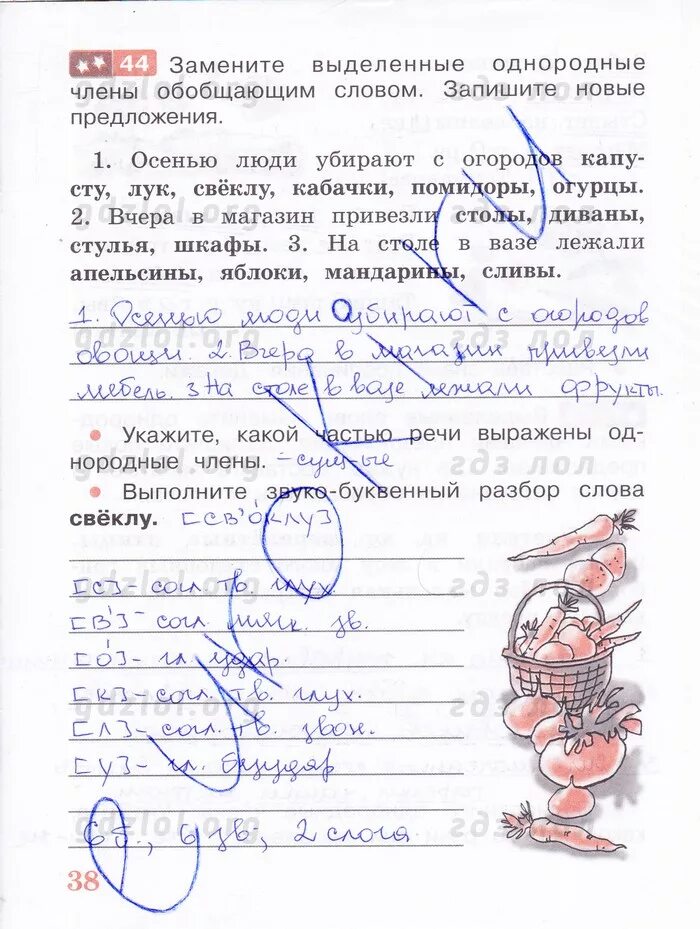 44 Замените выделенные однородные
члены обобщающим словом. Запишите новые
предложения.
1. Осенью люди убирают с огородов капу-
сту, лук, свёклу, кабачки, помидоры, огурцы.
2. Вчера в магазин привезли столы, диваны,
стулья, шкафы. 3. На столе в вазе лежали
апельсины, яблоки, мандарины, сливы.
1. Осенью люди убирают с огородов
овощи. 2. Вчера в магазин привезли
мебель. 3 На столе в вазе лежали фрукты.
• Укажите, какой частью речи выражены од-
нородные члены. - сущ-ые
• Выполните звуко-буквенный разбор слова
свёклу. [св'о́клу]
[с] - согл. тв. глух.
[в'] - согл. мягк. зв.
[о́] - гл. удар.
[к] - согл. тв. глух.
[л] - согл. тв. звон.
[у] - гл. безудар
6 б., 6 зв., 2 слога
38
gdzlol.org
гдз лол